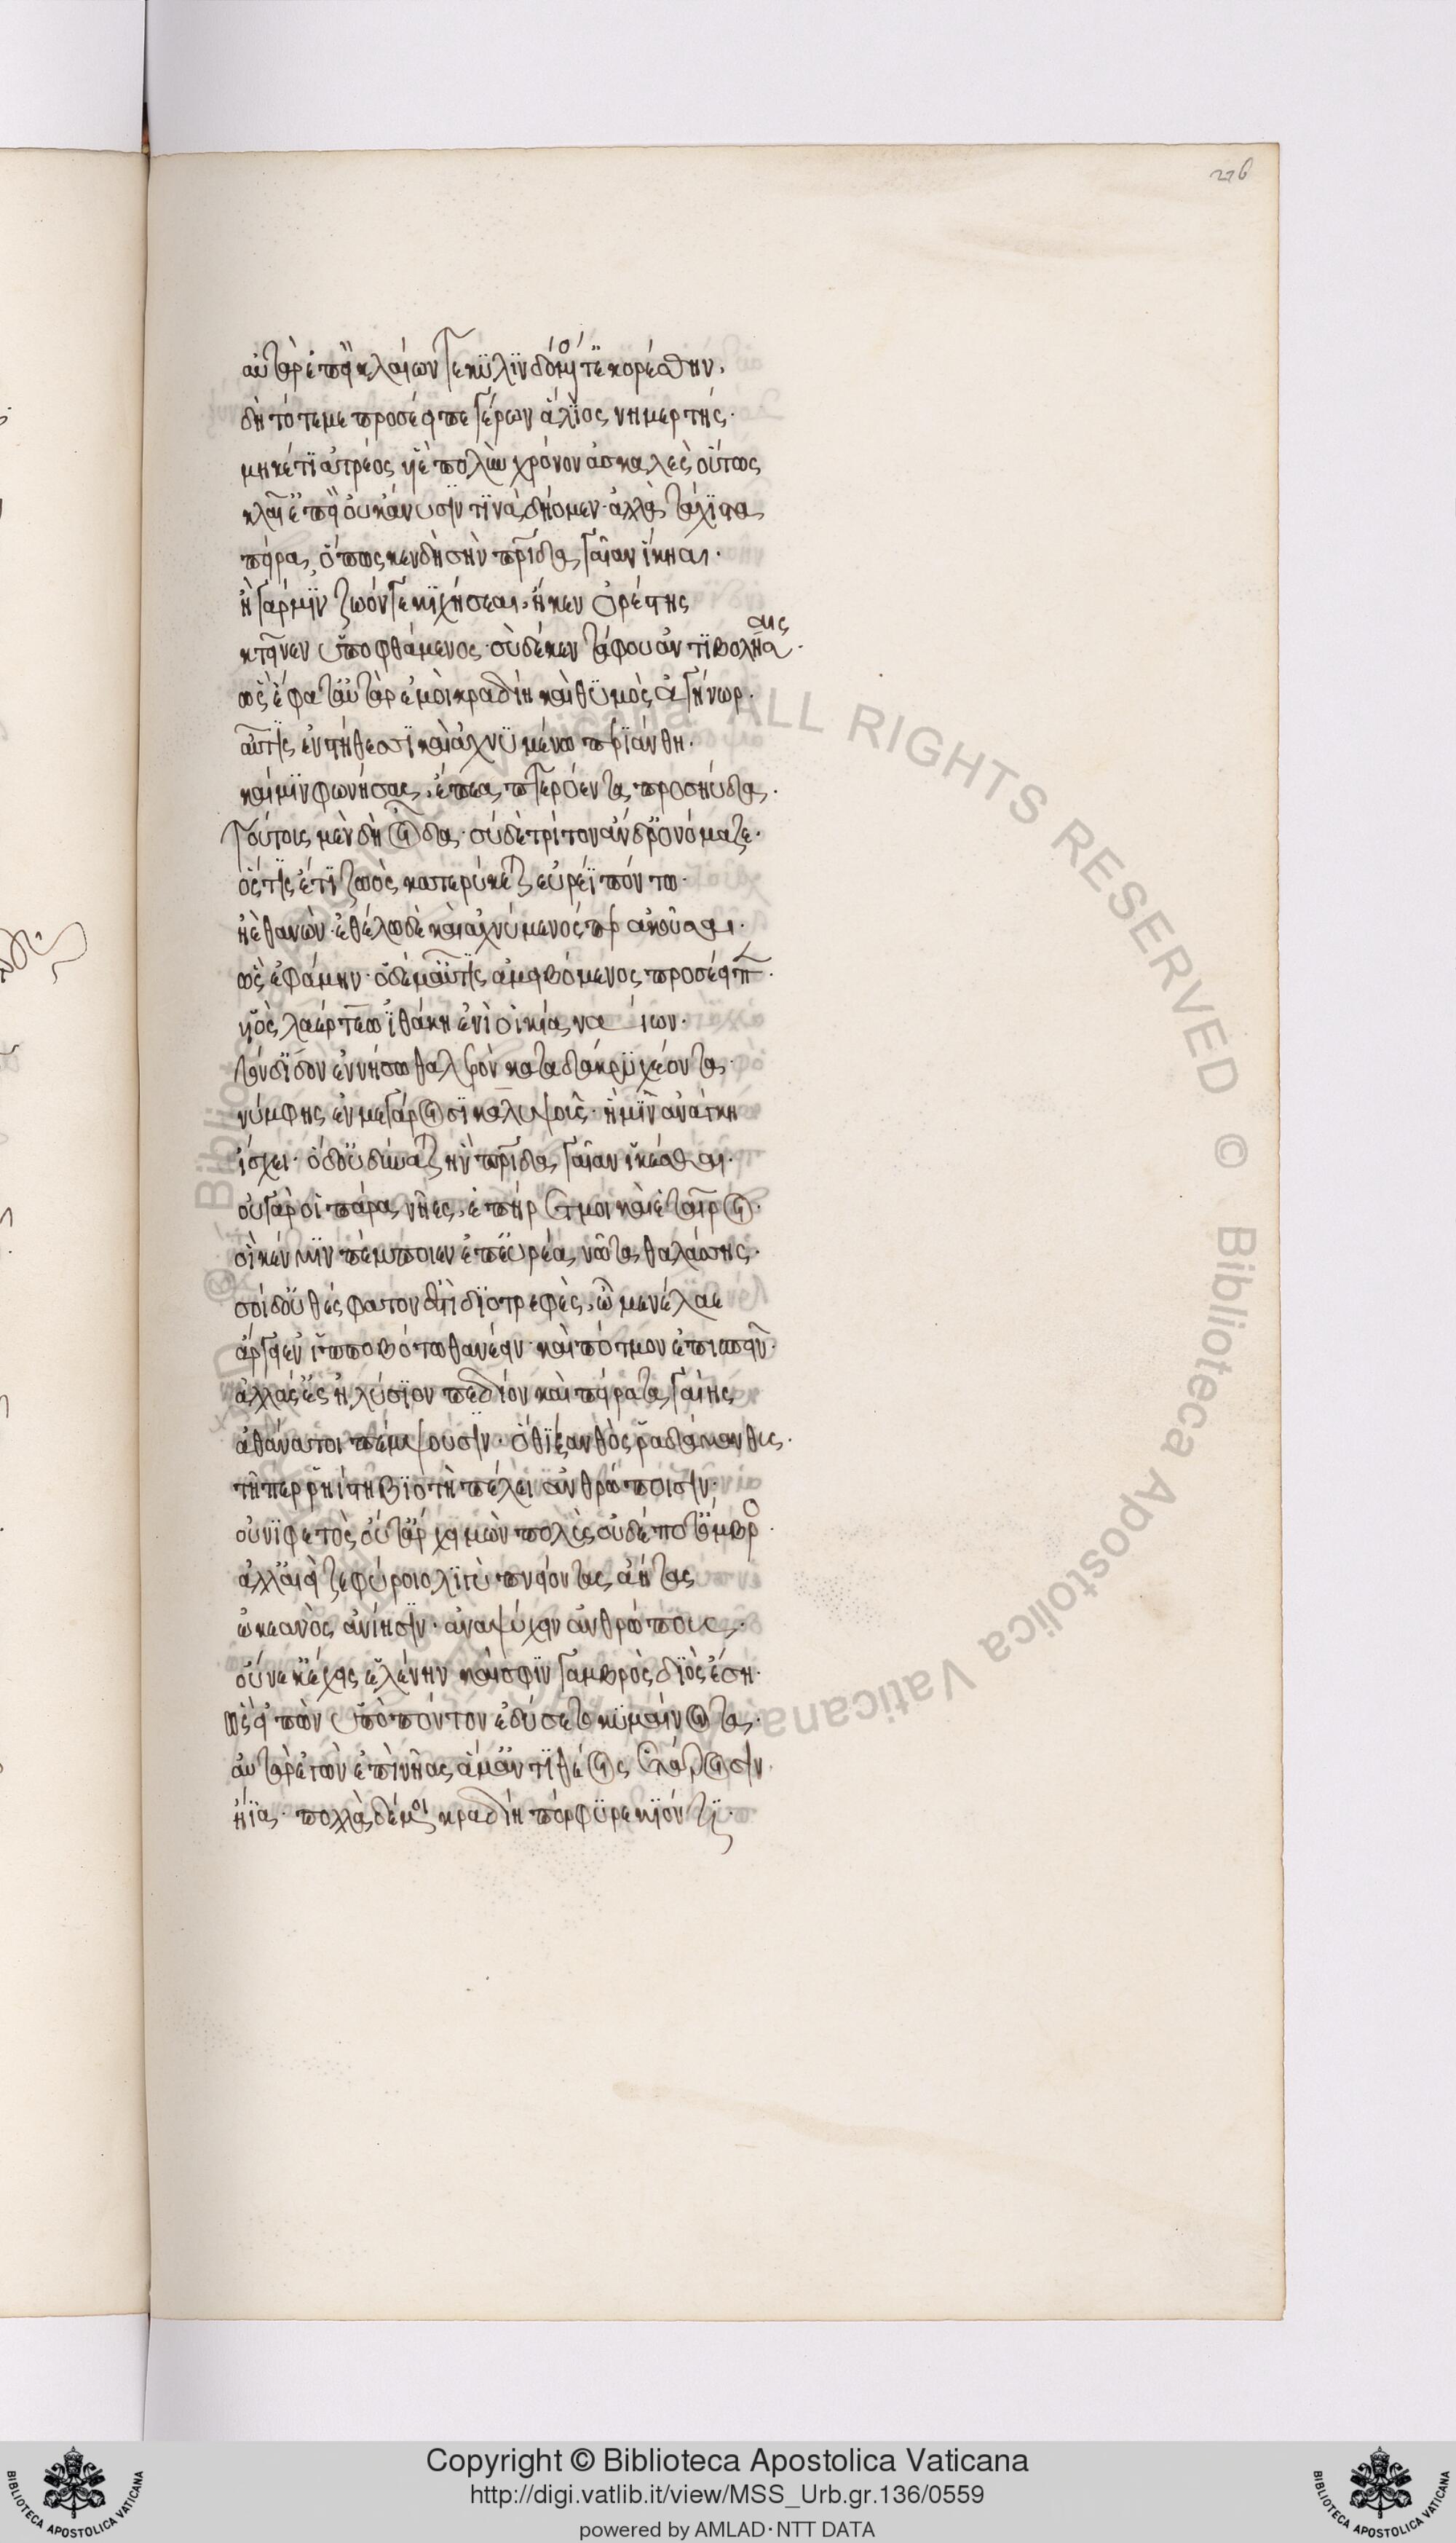 276
αὐτὰρ ἐπεὶ κλαίων τε κυλινδόμενός τε κορέσθην.
δὴ τότε με προσέειπε γέρων ἅλιος νημερτής.
μηκέτι ἀτρέος υἱὲ πολὺν χρόνον ἀσκελὲς οὕτως
κλαῖ' ἐπεὶ οὐκ ἄνυσίν τινα δήομεν· ἀλλὰ τάχιστα
πείρα, ὅπως κεν δὴ σὴν πατρίδα γαῖαν ἵκηαι.
ἢ γάρ μιν ζωόν γε κιχήσεαι, ἤ κεν ὀρέστης
κτεῖνεν ὑποφθάμενος· σὺ δέ κεν τάφου ἀντιβολήσαις.
ὣς ἔφατ' αὐτὰρ ἐμοὶ κραδίη καὶ θυμὸς ἀγήνωρ.
αὖτις ἐν στήθεσι καὶ ἀχνυμένω περ ἰάνθη.
καί μιν φωνήσας, ἔπεα πτερόεντα προσηύδα.
τούτους μὲν δὴ οἶδα· σὺ δὲ τρίτον ἄνδρ' ὀνόμαζε.
ὅς τις ἔτι ζωὸς κατερύκεται εὐρέϊ πόντω.
ἠὲ θανών· ἐθέλω δὲ καὶ ἀχνύμενός περ ἀκοῦσαι.
ὣς ἐφάμην· ὁ δέ μ' αὖτις ἀμειβόμενος προσέειπε.
υἱὸς λαέρτεω ἰθάκη ἐνὶ οἰκία ναίων.
τὸν δ' ἴδον ἐν νήσω θαλερὸν κατὰ δάκρυ χέοντα
νύμφης ἐν μεγάροισι καλυψοῦς· ἥ μιν ἀνάγκη
ἴσχει· ὁ δ' οὐ δύναται ἣν πατρίδα γαῖαν ἱκέσθαι.
οὐ γάρ οἱ πάρα νῆες, ἐπήρετμοι καὶ ἑταῖροι.
οἵ κέν μιν πέμποιεν ἐπ' εὐρέα νῶτα θαλάσσης.
σοὶ δ' οὐ θέσφατόν ἐστι διοτρεφὲς, ὦ μενέλαε
ἄργει ἐν ἱπποβότω θανέειν· καὶ πότμον ἐπισπεῖν.
ἀλλά σ' ἐς ἠλύσιον πεδίον καὶ πείρατα γαίης
ἀθάνατοι πέμψουσιν· ὅθι ξανθὸς ῥαδάμανθυς.
τῇ περ ῥηίστη βιοτὴ πέλει ἀνθρώποισιν·
οὐ νιφετὸς οὔτ' ἂρ χειμὼν πολὺς οὐδέ ποτ' ὄμβρος.
ἀλλ' αἰεὶ ζεφύροιο λιγὺ πνείοντας ἀήτας
ὠκεανὸς ἀνίησιν· ἀναψύχειν ἀνθρώπους.
οὕνεκ' ἔχεις ἑλένην καί σφιν γαμβρὸς διός ἐσσι.
ὣς εἰπὼν ὑπὸ πόντον ἐδύσετο κυμαίνοντα.
αὐτὰρ ἐγὼν ἐπὶ νῆας ἅμ' ἀντιθέοις ἑτάροισιν.
ἤϊα· πολλὰ δέ μοι κραδίη πόρφυρε κιόντι.
ALL RIGHTS RESERVED
© Biblioteca Apostolica Vaticana
Copyright © Biblioteca Apostolica Vaticana
http://digi.vatlib.it/view/MSS_Urb.gr.136/0559
powered by AMLAD·NTT DATA
BIBLIOTECA APOSTOLICA VATICANA
BIBLIOTECA APOSTOLICA VATICANA